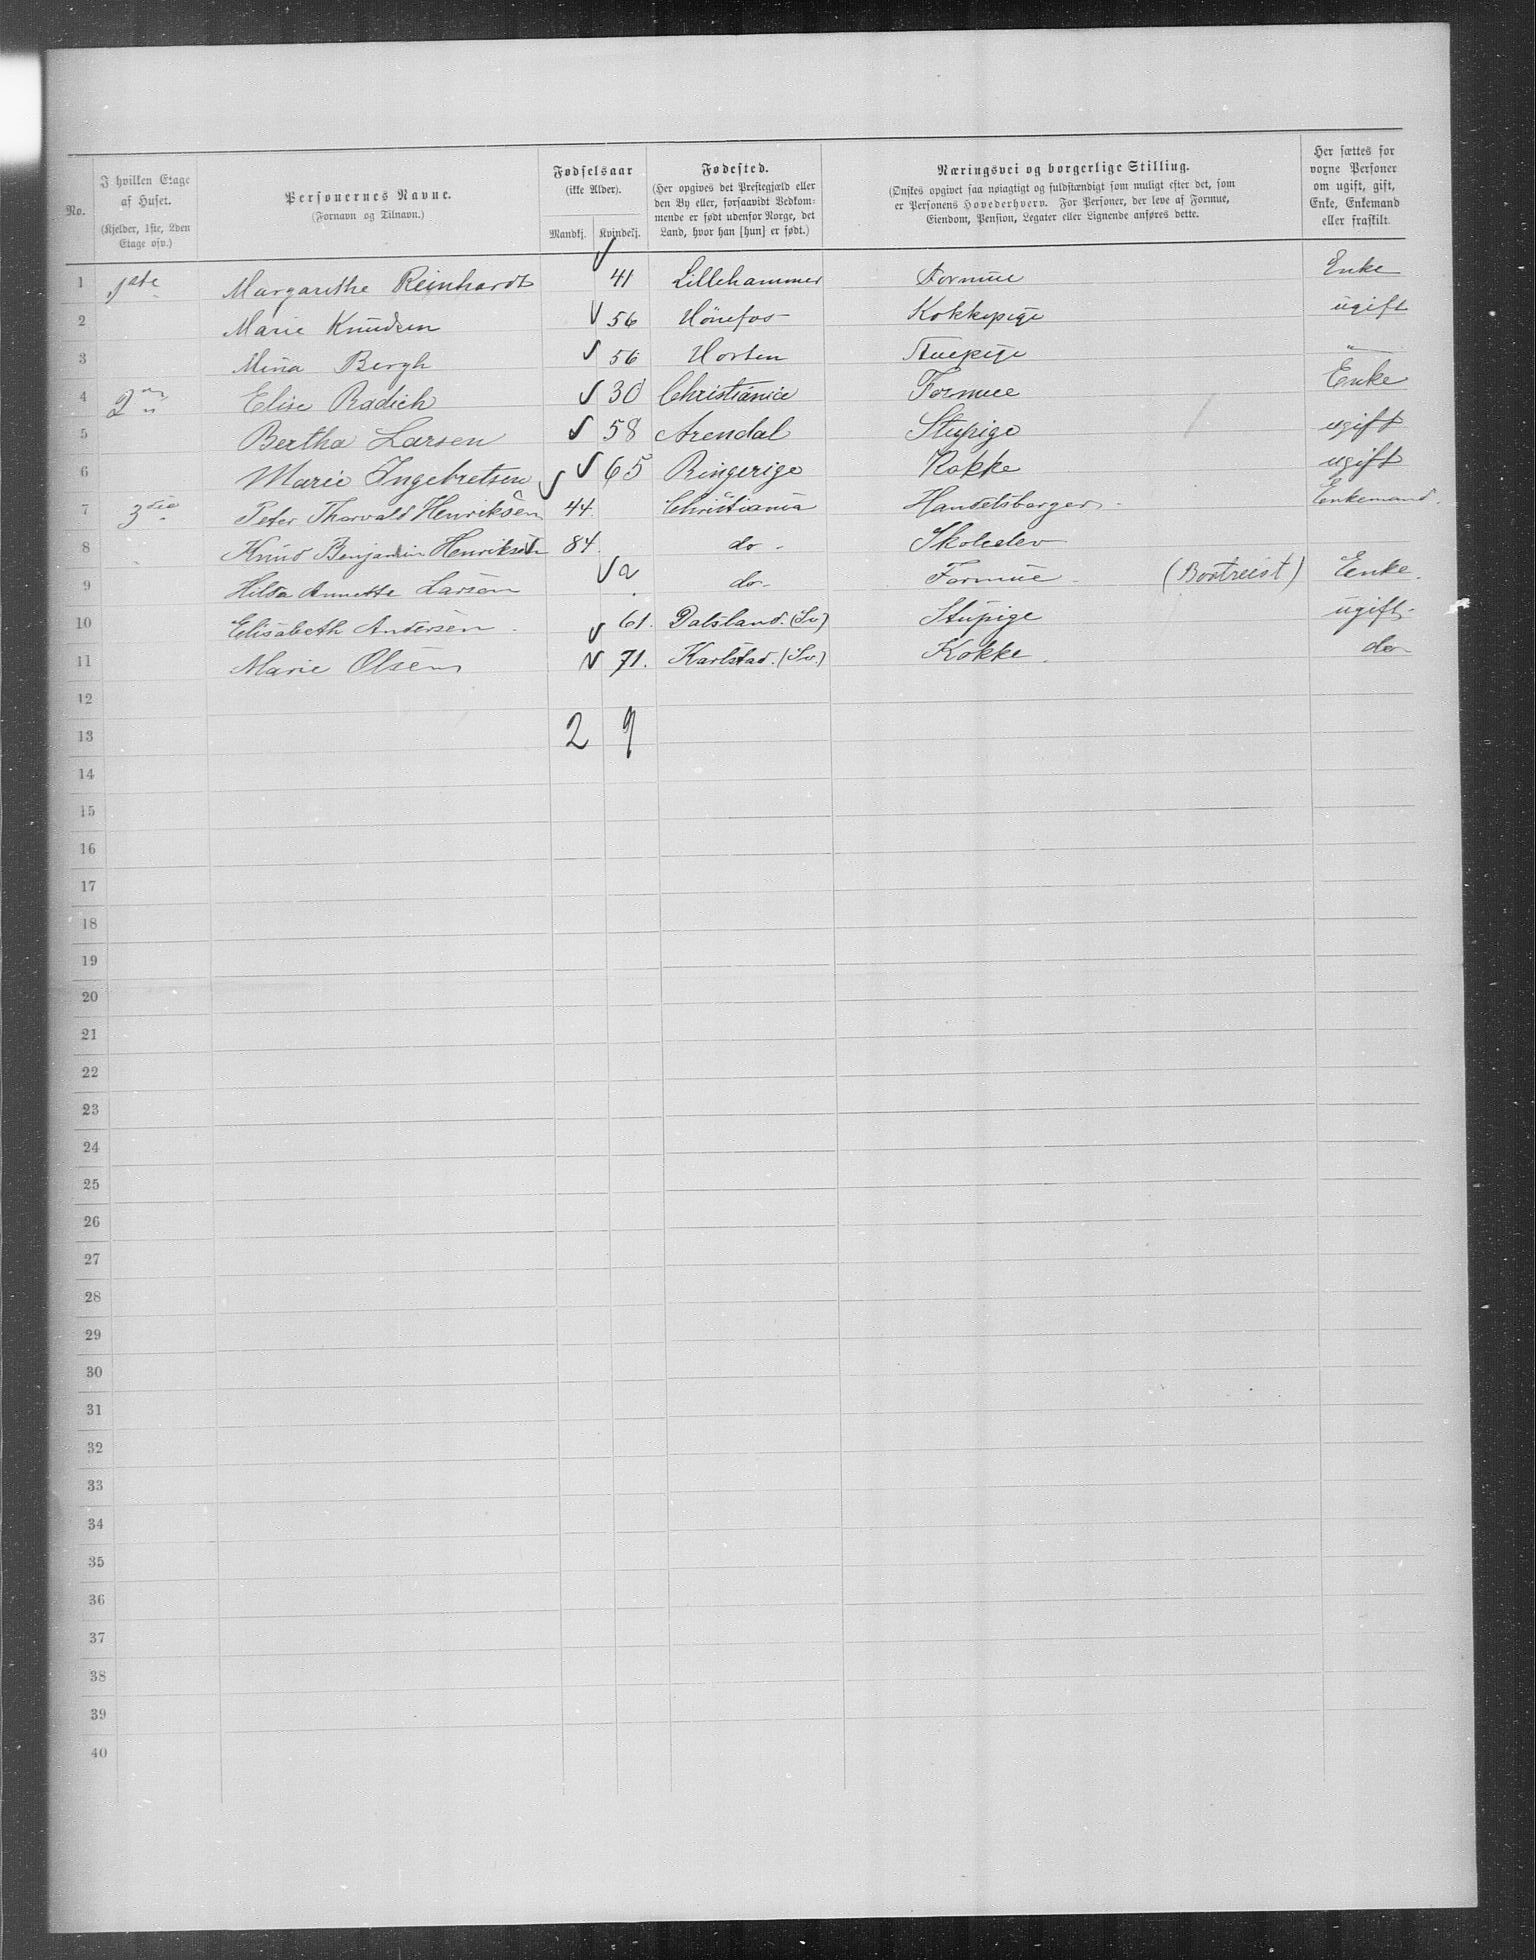 No.
I hvilken Etage af Huset.
(Kjelder, 1ste, 2den Etage osv.)
Personernes Navne.
(Fornavn og Tilnavn.)
Fødselsaar
(ikke Alder).
Mandkj. Kvindekj.
Fødested.
(Her opgives det Prestegjæld eller den By eller, forsaavidt Vedkommende er født udenfor Norge, det Land, hvor han [hun] er født.)
Næringsvei og borgerlige Stilling.
(Ønskes opgivet saa nøiagtigt og fuldstændigt som muligt efter det, som er Personens Hovederhverv. For Personer, der leve af Formue, Eiendom, Pension, Legater eller Lignende anføres dette.
Her sættes for vorne Personer om ugift, gift, Enke, Enkemand eller fraskilt.
1 1ste Margarethe Reinhardt 41 Lillehammer Formue Enke
2 Marie Knudsen 56 Hönefos Kokkepige ugift
3 Mina Bergh 56 Horten Stuepige "
4 2den Elise Radich 30 Christiania Formue Enke
5 Bertha Larsen 58 Arendal Stupige ugift
6 Marie Ingebretsen 65 Ringerige Kokke ugift
7 3die Peter Thorvald Henriksen 44. Christiania Handelsborger. Enkemand.
8 Knud Benjamin Henriksen 84. do. Skoleelev
9 Hilda Annette Larsen do. Formue. (Bortreist) Enke.
10 Elisabeth Andersen. 61. Dalsland. (Sv) Stupige ugift.
11 Marie Olsen 71. Karlstad. (Sv.) Kokke. do
12
13 2 9
14
15
16
17
18
19
20
21
22
23
24
25
26
27
28
29
30
31
32
33
34
35
36
37
38
39
40